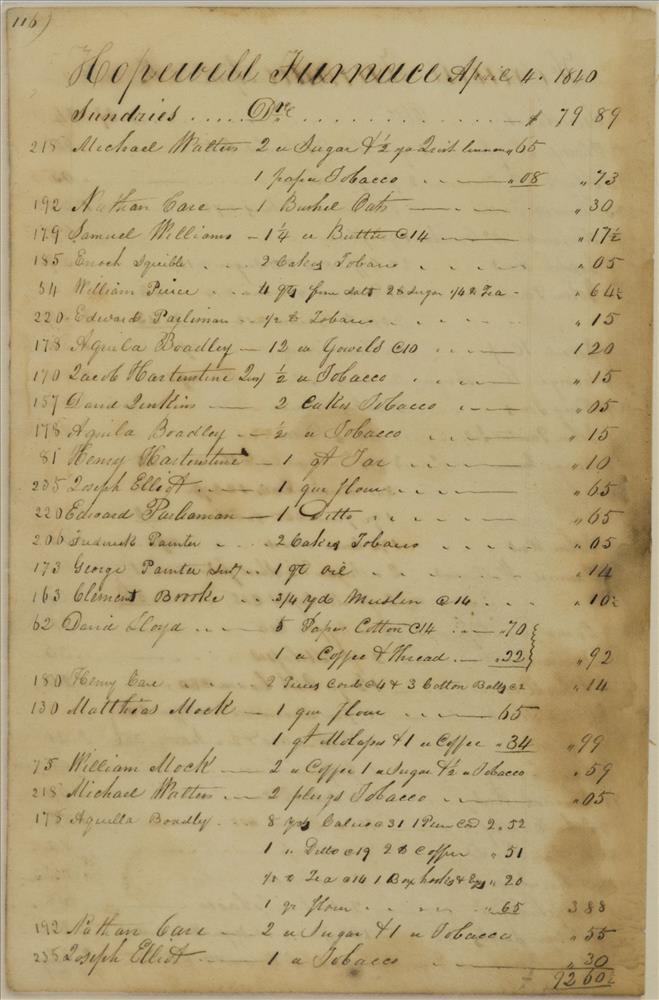 116)
Hopewell Furnace April 4. 1840
Sundries ..... Drs ............ $ 79 89
218 Michael Walters 2 " Sugar & ½ yd linnen " 65
1 paper Tobacco . . — " 08 " 73
192 Nathan Care — 1 Bushel Oats — — — . " 30
179 Samuel Williams - 1¼ " Butter @14 — " 17½
185 Enoch Squibb . . 2 Cakes Tobacco " 05
54 William Peirce . . . 4 qts fine salt 2 lb Sugar ¼ lb Tea - " 64½
220 Edward Parliman - ½ lb Tobacco . . . . " 15
178 Aquila Boadley — 12 " @10 . . . — 1 20
170 Jacob Hartenstine ½ " Tobacco . . — " 15
157 David Jenkins — 2 Cakes Tobacco . . — " 05
178 Aquila Boadley . — ½ " Tobacco . . — " 15
81 Henry Hartenstine — 1 qt Tar . . . — " 10
235 Joseph Elliot . — 1 qur flour . . . — " 65
220 Edward Parliaman — 1 Ditto . . . . — " 65
206 Frederick Painter . . . 2 Cakes Tobacco . . . " 05
173 George Painter . . 1 qt oil . . . . " 14
163 Clement Brooke . . 3/4 yd Muslin @ 14 . . . " 10½
62 David Lloyd . . . 5 Papers Cotton @14 . . — " 70
1 " Coffee & Thread . — " 22 } " 92
180 Henry Care . . . 2 Pieces Cord @4 & 3 Cotton Balls @2 " 14
130 Matthias Mock — 1 qur flour . . — 65
1 qt Molasses & 1 " Coffee " 34 " 99
75 William Mock — 2 " Coffee 1 " Sugar & ½ " Tobacco " 59
218 Michael Walters — 2 plugs Tobacco — . . — " 05
178 Aquilla Boadly . . . 8 yds Calico @ 31 1 Piece Cord 2 . 52
1 " Ditto @ 19 2 lb Coffee " 51
½ lb Tea @ 14 1 Box hooks & Eyes " 20
1 qr flour . . . . " 65 3 88
192 Nathan Care — 2 " Sugar & 1 " Tobacco " 55
235 Joseph Elliot . — 1 " Tobacco . . — " 30
92 60½